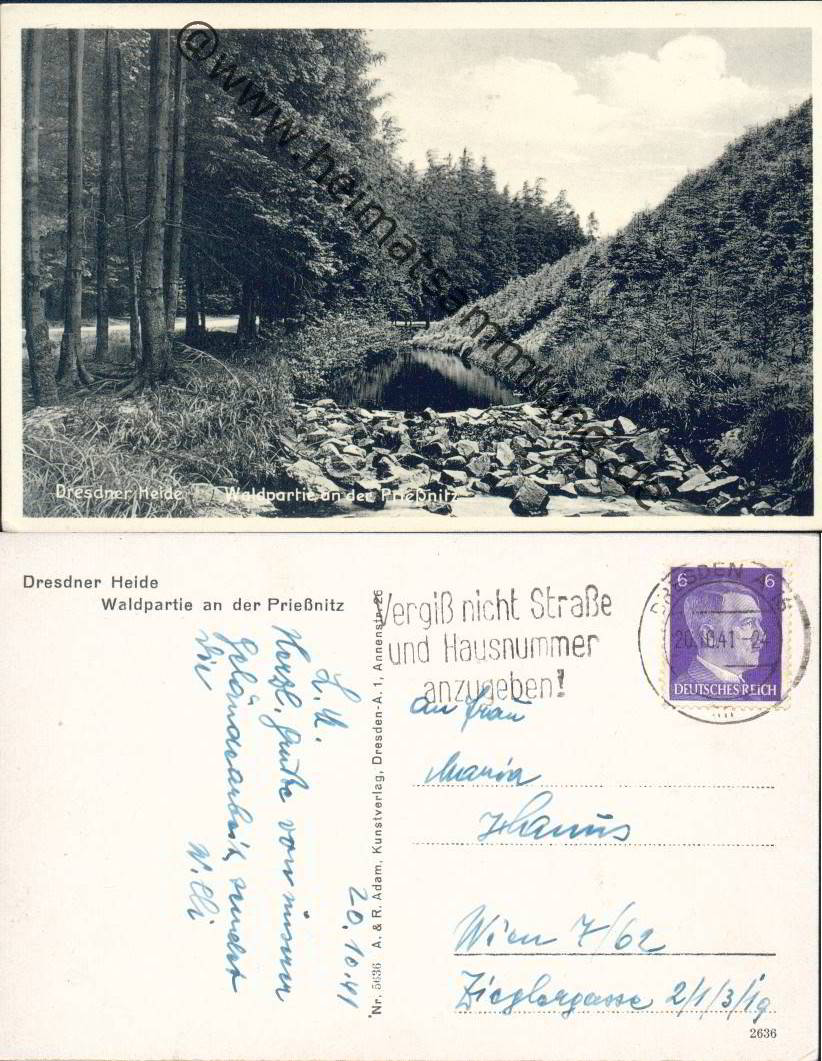 @www.heimatsammlung.de
Dresdner Heide Waldpartie an der Prießnitz
Dresdner Heide
Waldpartie an der Prießnitz
Vergiß nicht Straße
und Hausnummer
anzugeben!
DRESDEN A
20.10.41 -24
6 6
DEUTSCHES REICH
Nr. 5636 A. & R. Adam, Kunstverlag, Dresden-A. 1, Annenstr. 26
20.10.41
L. M.
Herzl. Grüße von
Geländearbeit, sendet
die
Willi
An Frau
Maria
Hanus
Wien 7/62
Zieglergasse 2/1/3/19
2636